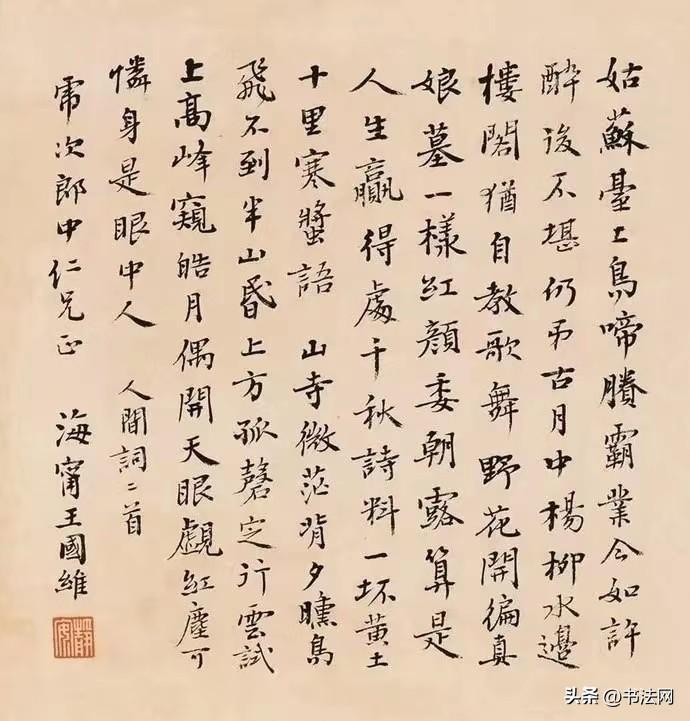 姑蘇臺上烏啼賸霸業今如許
醉後不堪仍弔古月中楊柳水邊
樓閣猶自教歌舞野花開徧真
娘墓一樣紅顏委朝露算是
人生贏得處千秋詩料一坏黃土
十里寒螿語 山寺微茫背夕曛鳥
飛不到半山昏上方孤磬定行雲試
上高峰窺皓月偶開天眼覷紅塵可
憐身是眼中人 人間詞二首
次郎中仁兄正 海甯王國維
靜安
头条 @书法网